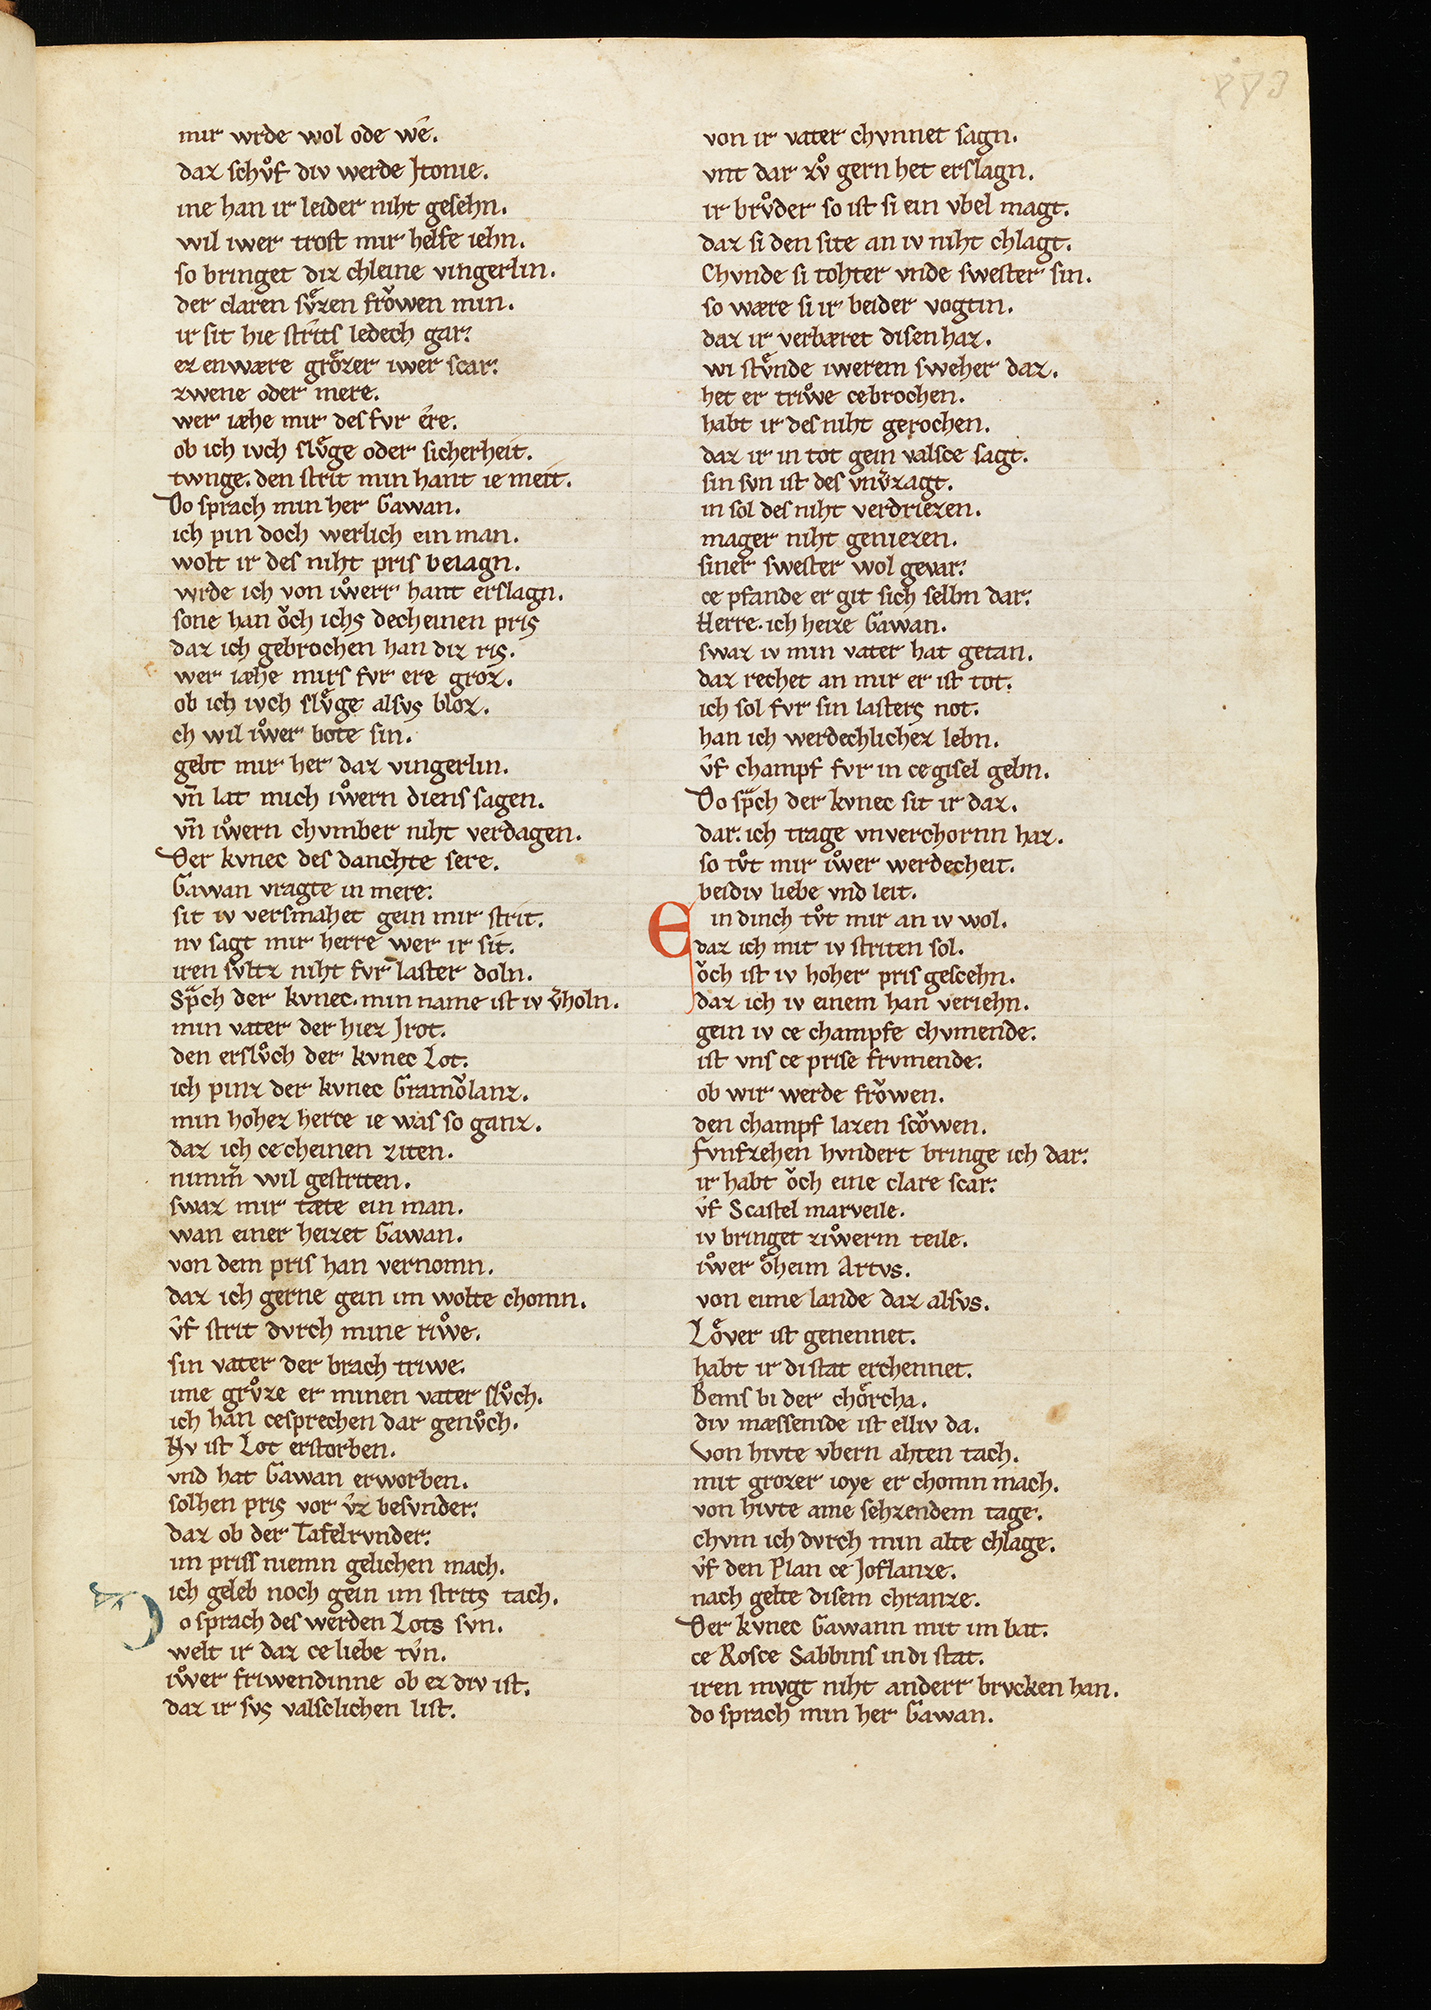 mir wrde wol ode we̾.
daz schv̊f div werde Jtonie.
ine han ir leider niht gesehn.
wil iwer trost mir helfe iehn.
so bringet diz chleine vingerlin.
der claren sv̊zen frŏwen min.
ir sit hie strits ledech gar.
ez enwære grôzer iwer scar.
zwene oder mere.
wer iæhe mir des fvr êre.
ob ich ivch slv̊ge oder sicherheit.
twnge. den strit min hant ie meit.
Do sprach min her Gawan.
ich pin doch werlich ein man.
wolt ir des niht pris beiagn.
wrde ich von iẘerr hant erslagn.
sone han ŏch ichs decheinen pris
daz ich gebrochen han diz ris.
wer iæhe mirs fvr ere groz.
ob ich ivch slv̊ge alsvs bloz.
ch wil iẘer bote sin.
gebt mir her daz vingerlin.
vn̄ lat mich iẘern diens sagen.
vn̄ iẘern chvmber niht verdagen.
Der kvnec des danchte sere.
Gawan vragte in mere.
sit iv versmahet gein mir strit.
nv sagt mir herre wer ir sit.
iren svltz niht fvr laster doln.
Sp̄ch der kvnec. min name ist iv v̾holn.
min vater der hiez Jrot.
den erslv̊ch der kvnec Lot.
ich pinz der kvnec Gramŏlanz.
min hohez herce ie was so ganz.
daz ich ce cheinen ziten.
nimm̾ wil gestriten.
swaz mir tæte ein man.
wan einer heizet Gawan.
von dem pris han vernomn.
daz ich gerne gein im wolte chomn.
v̂f strit dvrch mine riẘe.
sin vater der brach triwe.
ime grv̊ze er minen vater slv̊ch.
ich han cesprechen dar genv̊ch.
Nv ist Lot erstorben.
vnd hat Gawan erworben.
solhen pris vor v̂z besvnder.
daz ob der Tafelrvnder.
im priss niemn gelichen mach.
ich geleb noch gein im strits tach.
Do sprach des werden Lots svn.
welt ir daz ce liebe tv̂n.
iẘer friwendinne ob ez div ist.
daz ir svs valsclichen list.
von ir vater chvnnet sagn.
vnt dar zv̊ gern het erslagn.
ir brv̊der so ist si ein vbel magt.
daz si den site an iv niht chlagt.
Chvnde si tohter vnde swester sin.
so wære si ir beider vogtin.
daz ir verbæret disen haz.
wi stv̊nde iwerem sweher daz.
het er triẘe cebrochen.
habt ir des niht gerochen.
daz ir in tot gein valsce sagt.
sin svn ist des vnv̾zagt.
in sol des niht verdriezen.
mager niht geniezen.
siner swester wol gevar.
ce pfande er git sich selbn dar.
Herre. ich heize Gawan.
swaz iv min vater hat getan.
daz rechet an mir er ist tot.
ich sol fvr sin lasters not.
han ich werdechlichez lebn.
v̂f champf fvr in ce gisel gebn.
Do sp̄ch der kvnec sit ir daz.
dar. ich trage vnverchornn haz.
so tv̊t mir iẘer werdecheit.
beidiv liebe vnd leit.
Ein dinch tv̊t mir an iv wol.
daz ich mit iv striten sol.
ŏch ist iv hoher pris gescehn.
daz ich iv einem han veriehn.
gein iv ce champfe chvmende.
ist vns ce prise frvmende.
ob wir werde frŏwen.
den champf lazen scŏwen.
fvnfzehen hvndert bringe ich dar.
ir habt ŏch eine clare scar.
v̂f Scastel marveile.
iv bringet ziẘerm teile.
iẘer ôheim Artvs.
von eime lande daz alsvs.
Lôver ist genennet.
habt ir di stat erchennet.
Bems bi der chôrcha.
div mæssenide ist elliv da.
Von hivte vbern ahten tach.
mit grozer ioye er chomn mach.
von hivte ame sehzendem tage.
chvm ich dvrch min alte chlage.
v̂f den Plan ce Joflanze.
nach gelte disem chranze.
Der kvnec Gawann mit im bat.
ce Rosce Sabbins in di stat.
iren mvgt niht anderr brvcken han.
do sprach min her Gawan.